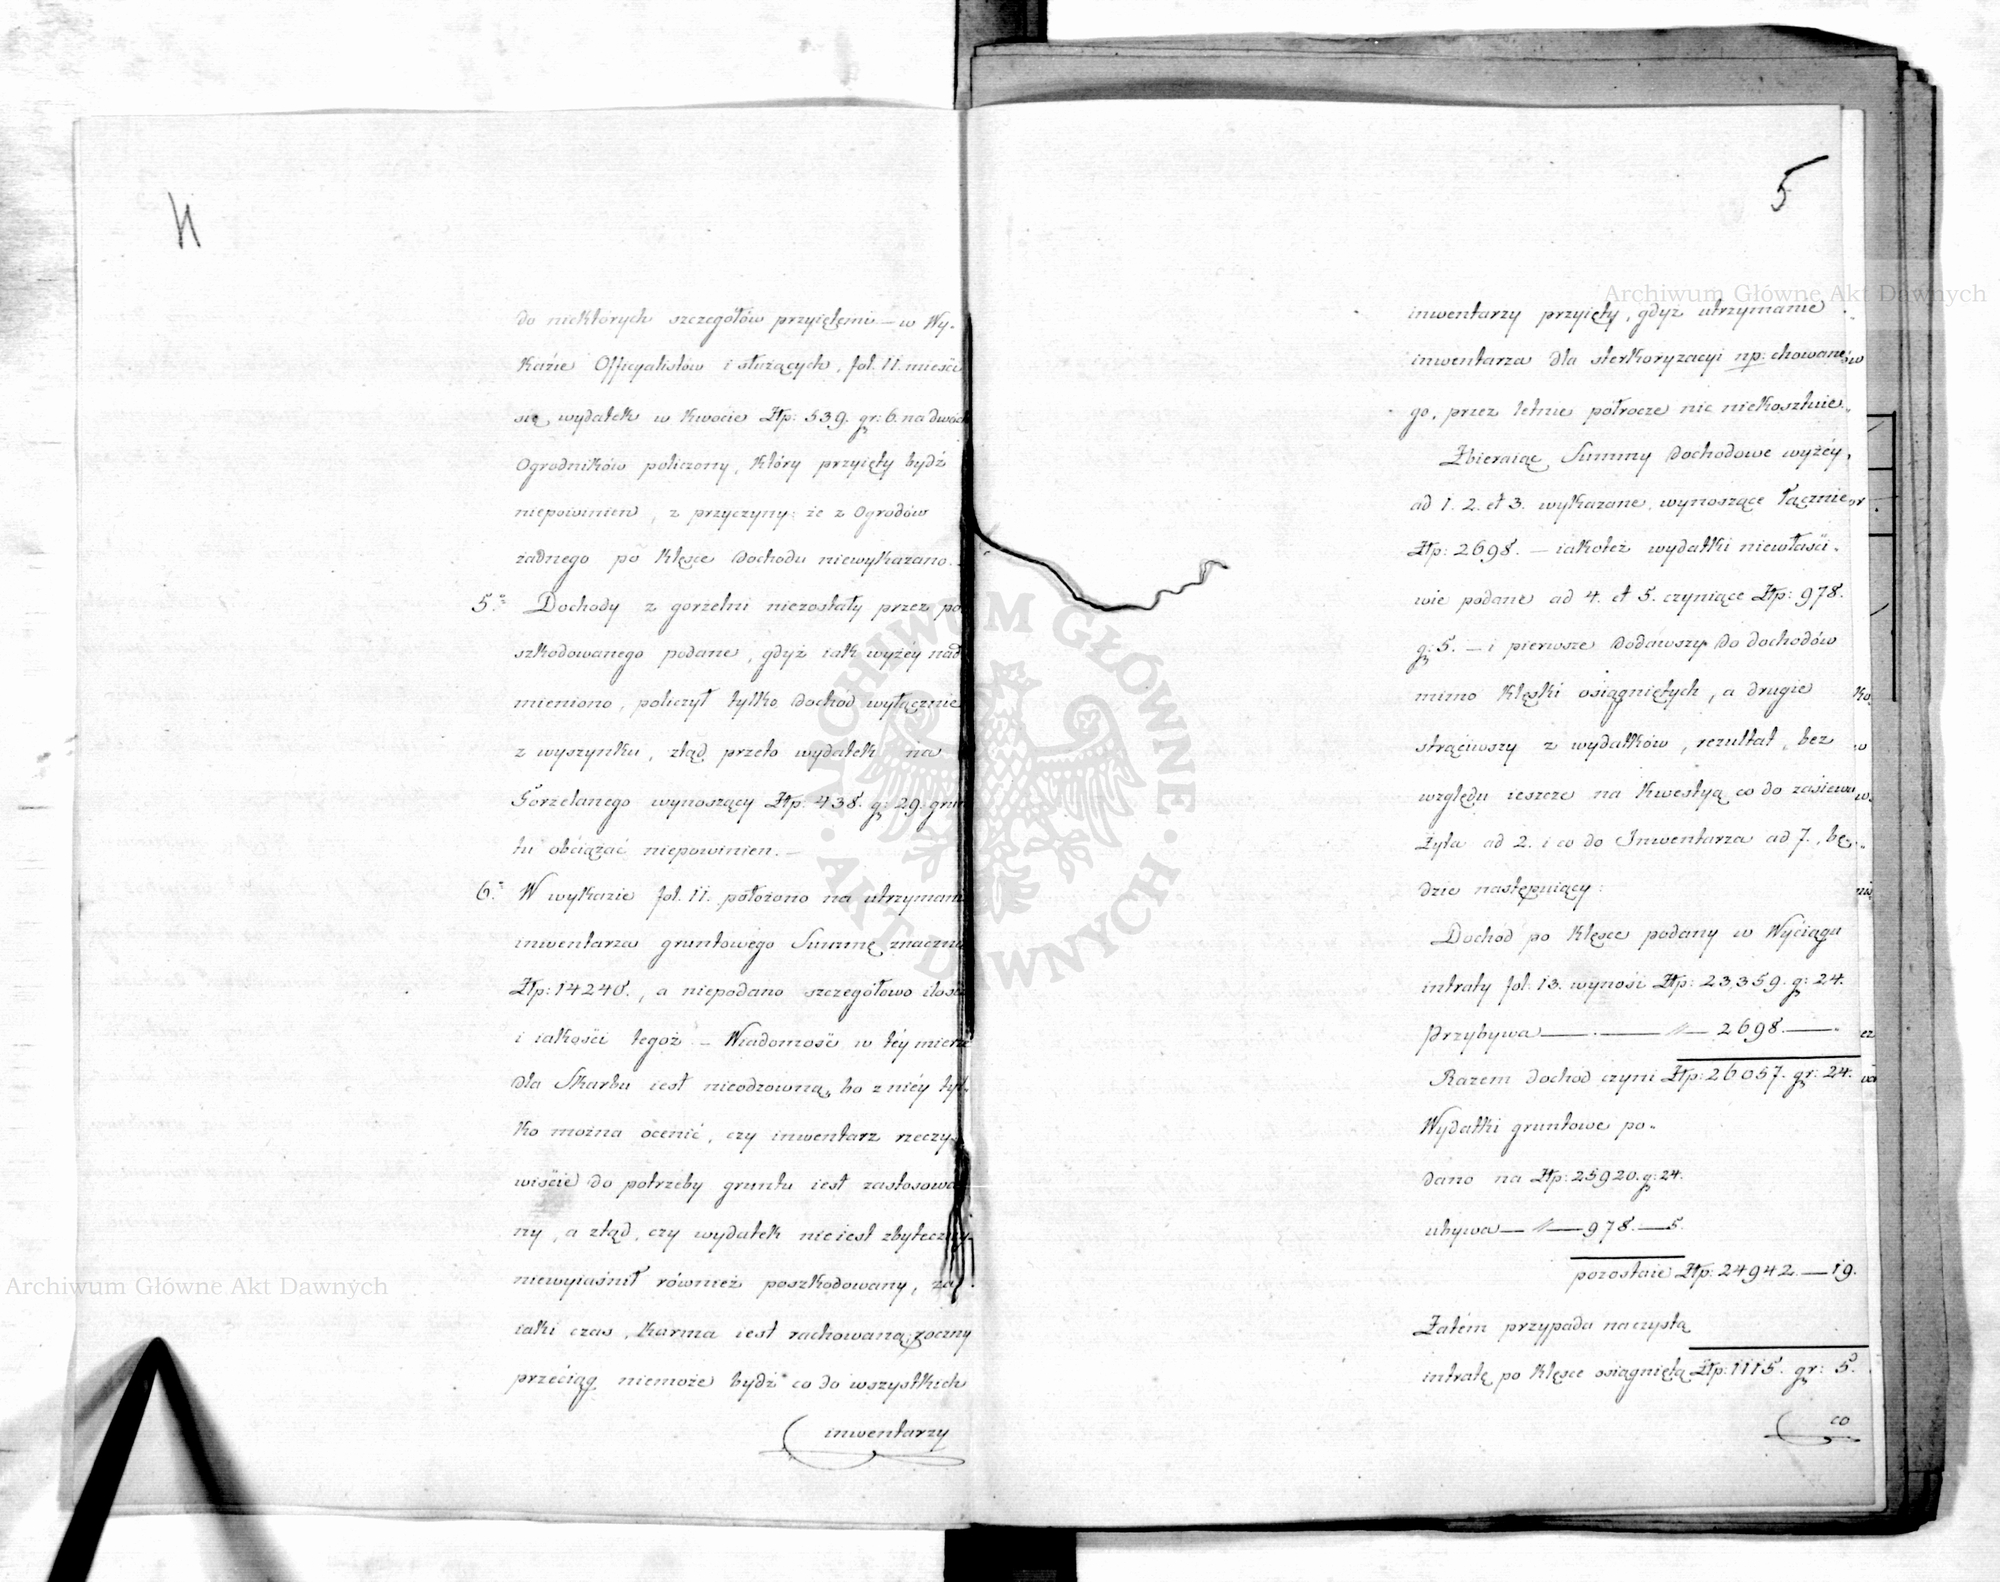 4
do niektórych szczegółów przyiętemi — w Wy-
kazie Officyalistów i służących, fol. 11. mieści
się wydatek w kwocie Złp: 539. gr: 6. na dwóch
Ogrodników policzony, który przyięty bydź
niepowinien, z przyczyny: że z Ogrodów
żadnego po klęsce dochodu niewykazano.
5.° Dochody z gorzelni niezostały przez po-
szkodowanego podane, gdyż iak wyżéy nad-
mieniono, policzył tylko dochód wyłącznie
z wyszynku, ztąd przeto wydatek na
Gorzelanego wynoszący Złp: 438. g: 29. grun-
tu obciążać niepowinien. —
6.° W wykazie fol. 11. położono na utrzymanie
inwentarza gruntowego Summę znaczną
Złp: 14240., a niepodano szczegółowo ilości
i iakości tegoż — Wiadomość w téy mierze
dla Skarbu iest nieodzowną, bo z niéy tyl-
ko można ocenić, czy inwentarz rzeczy-
wiście do potrzeby gruntu iest zastosowa-
ny, a ztąd, czy wydatek nieiest zbyteczny.
niewyiaśnił również poszkodowany, za
iaki czas, karma iest rachowaną; roczny
przeciąg niemoże bydź co do wszystkich
inwentarzy
5
inwentarzy przyięty, gdyż utrzymanie
inwentarza dla sterkoryzacyi np: chowane-
go, przez letnie półrocze nic niekosztuie.
Zbieraiąc Summy dochodowe wyżéy,
ad 1. 2. et 3. wykazane, wynoszące łącznie
Złp: 2698. — iakoteż wydatki niewłaści-
wie podane ad 4. et 5. czyniące Złp: 978.
g: 5. — i pierwsze dodawszy do dochodów
mimo klęski osiągniętych, a drugie
strąciwszy z wydatków, rezultat, bez
względu ieszcze na kwestyą co do zasiewu
Żyta ad 2. i co do Inwentarza ad 7., bę-
dzie następuiący:
Dochód po klęsce podany w Wyciągu
intraty fol: 13. wynosi Złp: 23,359. g: 24.
Przybywa — " — 2698. —
Razem dochód czyni Złp: 26057. gr: 24.
Wydatki gruntowe po-
dano na Złp: 25920. g: 24.
ubywa — " — 978. — 5.
pozostaie Złp: 24942. — 19.
Zatém przypada na czystą
intratę po klęsce osiągniętą Złp: 1115. gr: 5.
co
Archiwum Główne Akt Dawnych
Archiwum Główne Akt Dawnych
· ARCHIWUM GŁÓWNE · AKT DAWNYCH